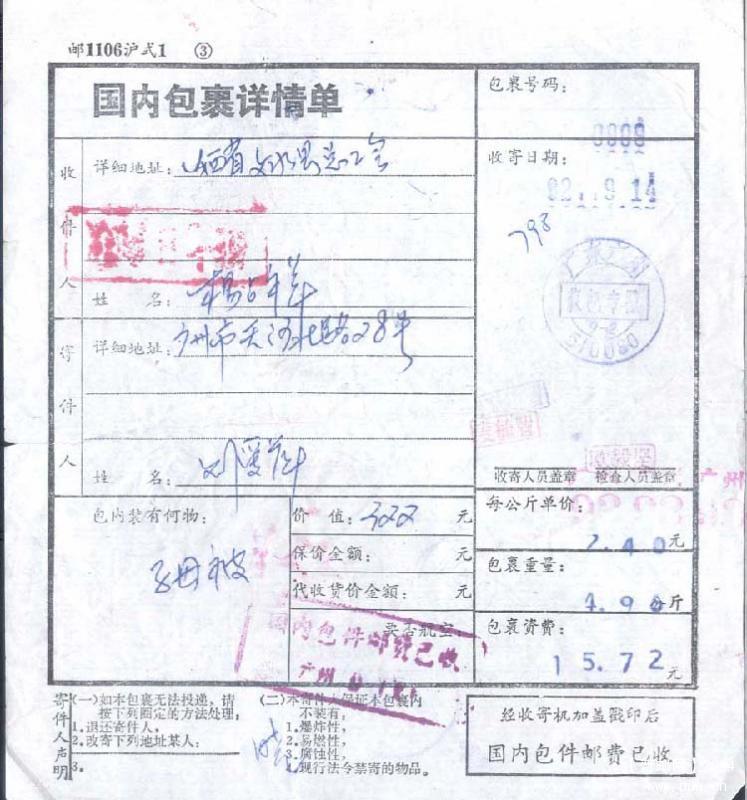 邮1106沪式1 ③
国内包裹详情单
包裹号码:
0008
收件人
详细地址: 山西省文水县总工会
收寄日期:
92. 9.14
793
姓 名:
寄件人
详细地址: 广州市天河北路28号
510080
姓 名: 刘爱萍
收寄人员盖章 检查人员盖章
广州
包内装有何物: 子母被
价 值: 322 元
保价金额: 元
代收货价金额: 元
要否航空:
国内包件邮费已收
广州
每公斤单价:
2.40元
包裹重量:
斤
包裹资费:
15.72元
寄件人声明
(一)如本包裹无法投递,请
按下列圈定的方法处理,
1.退还寄件人,
2.改寄下列地址某人:
3.
(二)本寄件人保证本包裹内
不装有:
1.爆炸性,
2.易燃性,
3.腐蚀性,
4.现行法令禁寄的物品。
经收寄机加盖戳印后
国内包件邮费已收